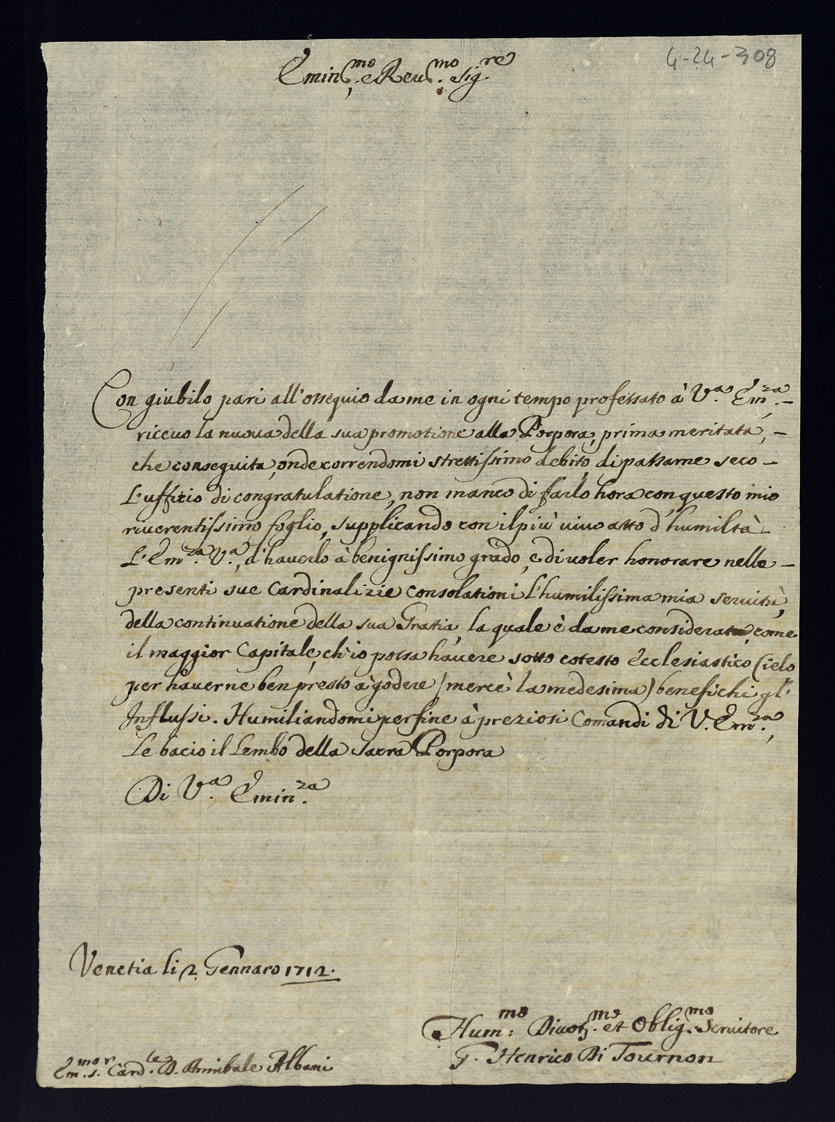 4-24-308
Emin.mo e Reu.mo Sig.re
Con giubilo pari all'ossequio da me in ogni tempo professato à V.a Em.za,-
riceuo la nuoua della sua promotione alla Porpora, prima meritata,-
che conseguita, onde correndomi strettissimo debito di passarne seco-
L'uffitio di congratulatione, non manco di farlo hora con questo mio
riuerentissimo foglio, supplicando con il più viuo atto d'humiltà-
L'Em.za V.a, d'hauerlo à benignissimo grado, e di uoler honorare nelle-
presenti sue Cardinalizie consolationi l'humilissima mia seruitù,
della continuatione della sua Gratia, la quale è da me considerata come
il maggior Capitale, ch'io possa hauere sotto cotesto Ecclesiastico Cielo
per hauerne ben presto à godere (mercè la medesima) benefichi gl'
Influssi. Humiliandomi per fine à preziosi Comandi di V. Em.za,
Le bacio il Lembo della Sacra Porpora
Di V.a Emin.za
Venetia li 2 Gennaro 1712.
Hum.mo Diuot.mo et Oblig.mo Seruitore
G. Henrico Di Tournon
Em.mo S.r Card.le D. Annibale Albani